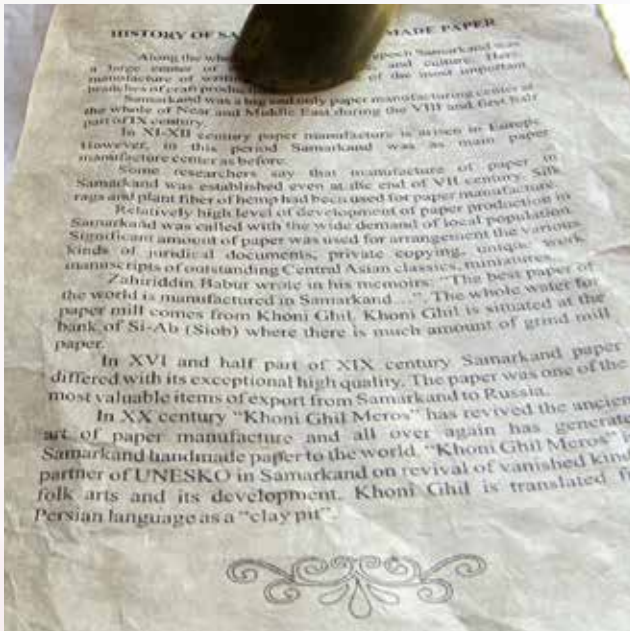 HISTORY OF SA MADE PAPER
Along the who epoch Samarkand was
a large center of and culture. Here
manufacture of writing of the most important
branches of craft produc
Samarkand was a big and only paper manufacturing center at
the whole of Near and Middle East during the VIII and first half
part of IX century.
In XI-XII century paper manufacture is arisen in Europe.
However, in this period Samarkand was as main paper
manufacture center as before.
Some researchers say that manufacture of paper in
Samarkand was established even at the end of VII century. Silk
rags and plant fiber of hemp had been used for paper manufacture.
Relatively high level of development of paper production in
Samarkand was called with the wide demand of local population.
Significant amount of paper was used for arrangement the various
kinds of juridical documents, private copying, unique work
manuscripts of outstanding Central Asian classics, miniatures.
Zahiriddin Babur wrote in his memoirs: "The best paper of
the world is manufactured in Samarkand...". The whole water for
paper mill comes from Khoni Ghil. Khoni Ghil is situated at the
bank of Si-Ab (Siob) where there is much amount of grind mill
paper.
In XVI and half part of XIX century Samarkand paper
differed with its exceptional high quality. The paper was one of the
most valuable items of export from Samarkand to Russia.
In XX century "Khoni Ghil Meros" has revived the ancien
art of paper manufacture and all over again has generate
Samarkand handmade paper to the world. "Khoni Ghil Meros"
partner of UNESKO in Samarkand on revival of vanished kind
folk arts and its development. Khoni Ghil is translated f
Persian language as a "clay pit".